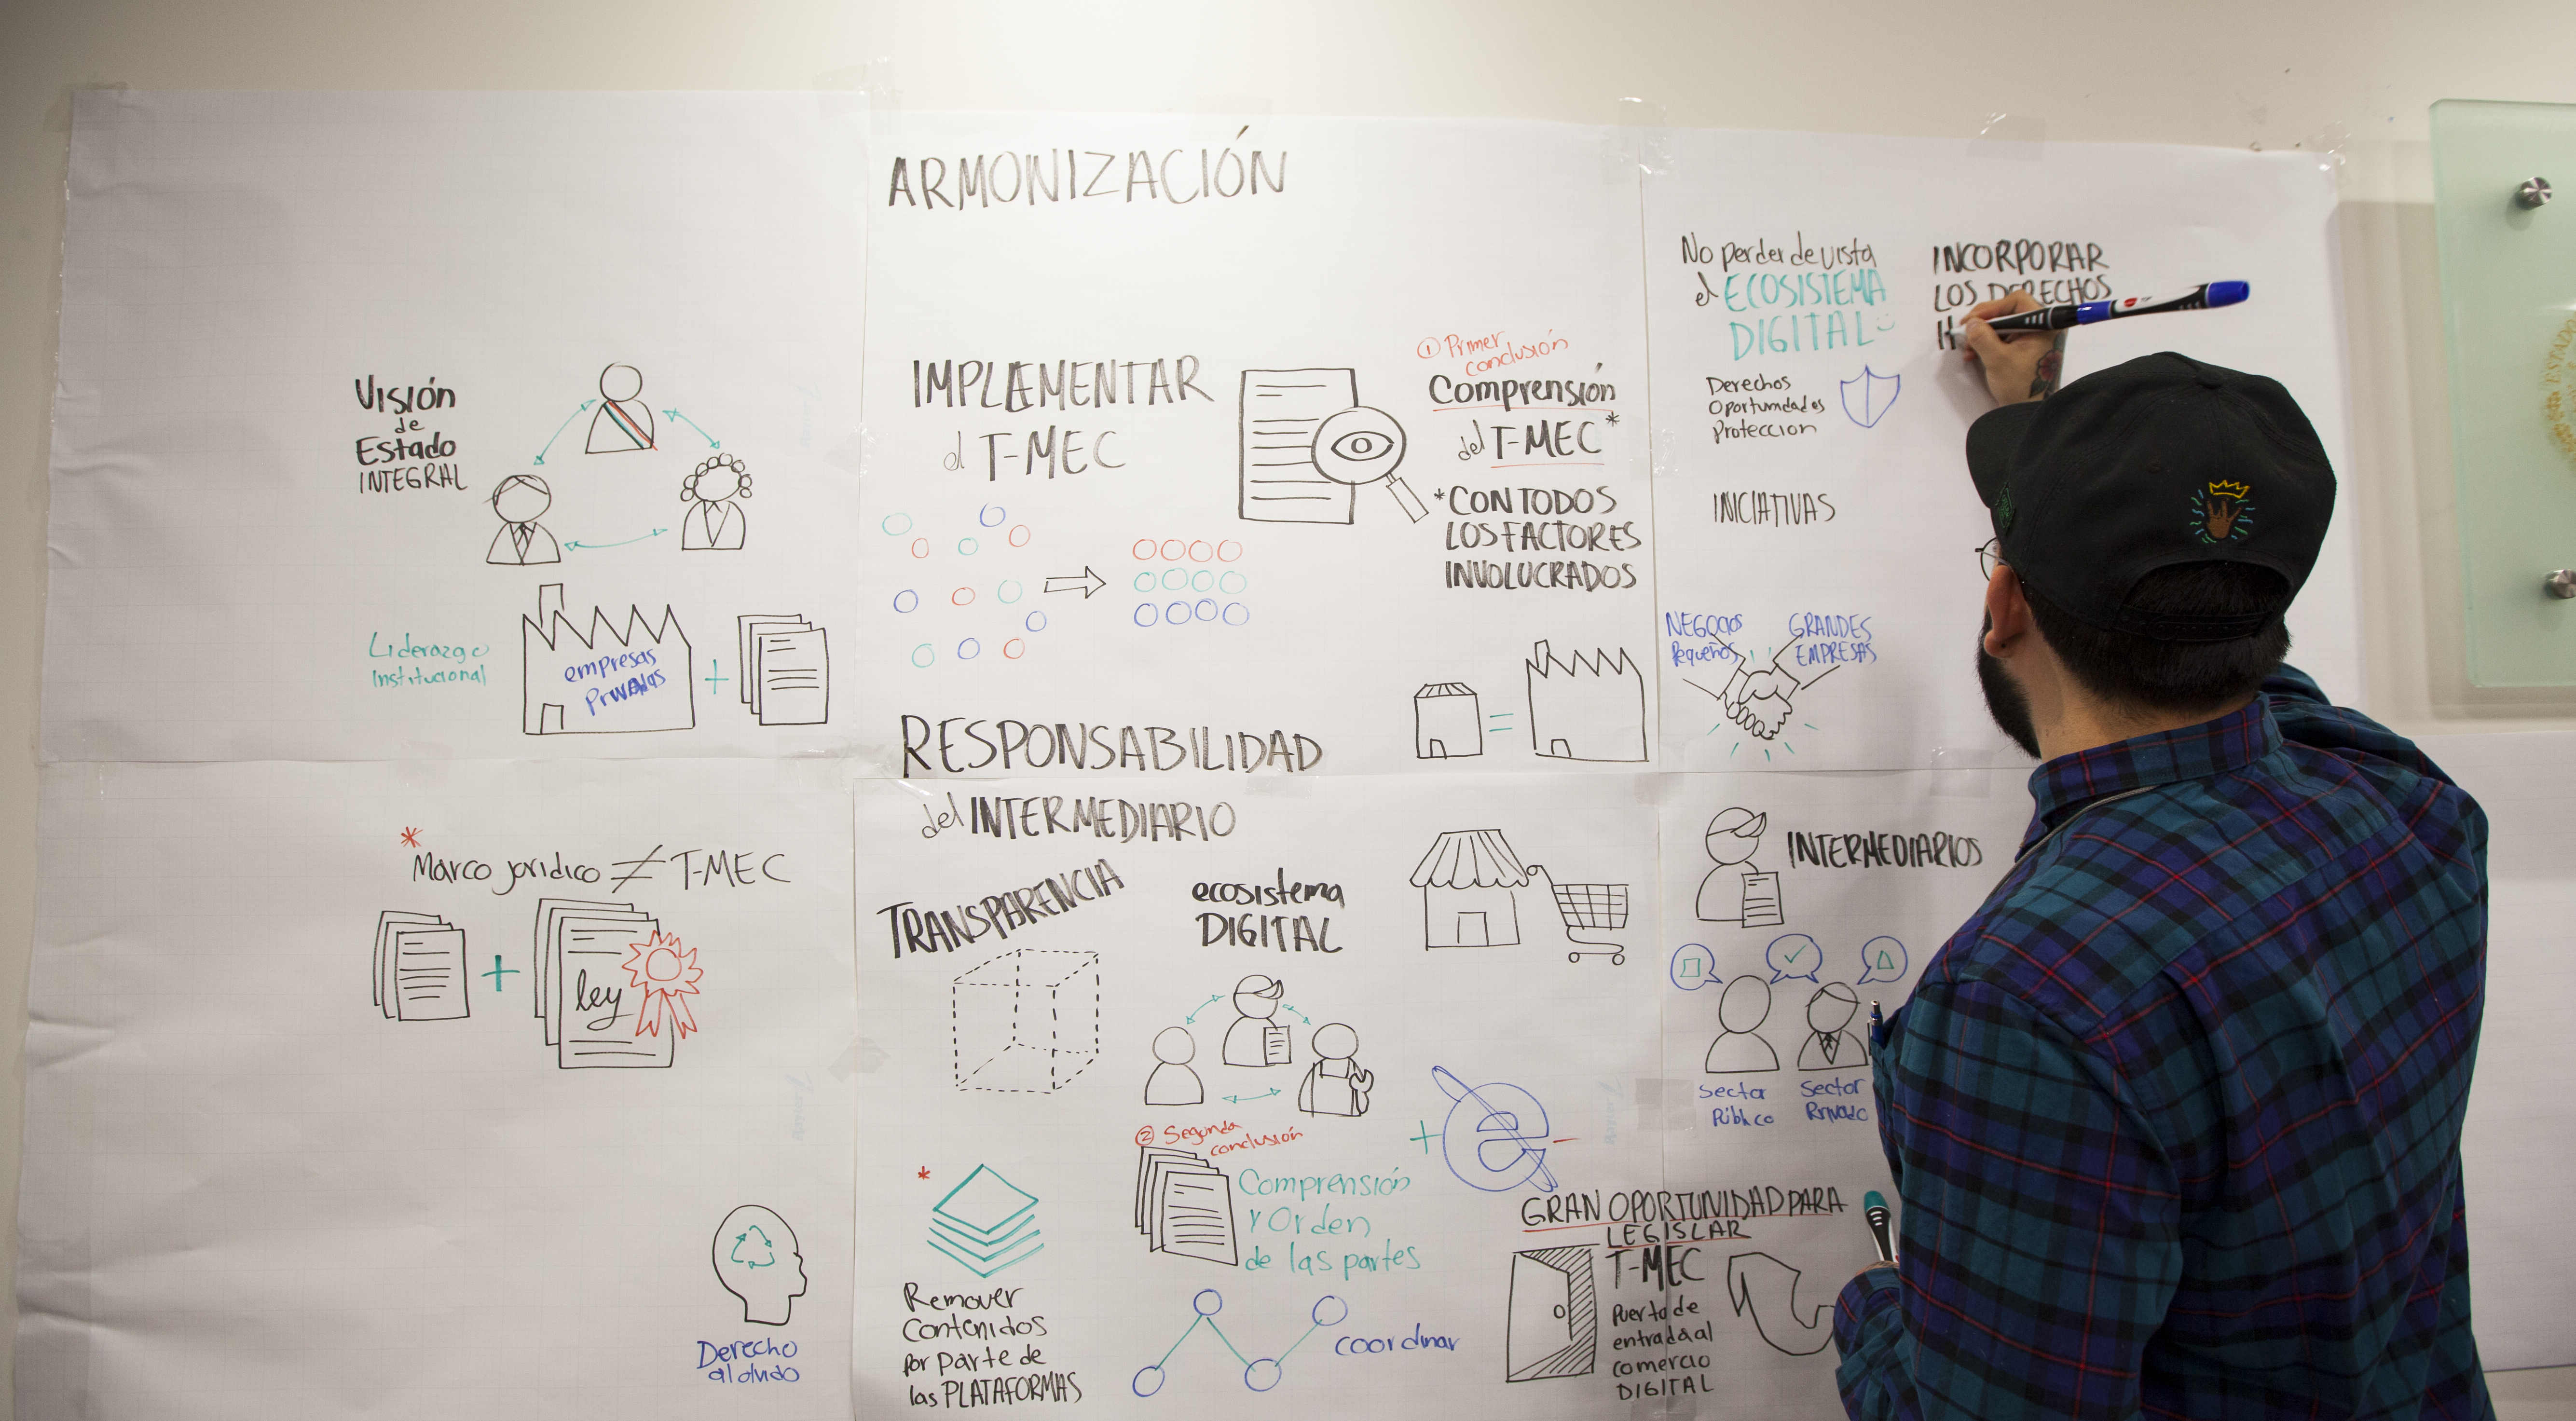 ARMONIZACIÓN
Visión
de
Estado
INTEGRAL
Liderazgo
Institucional
empresas
Privadas
+
*
Marco jurídico ≠ T-MEC
+
ley
Derecho
al olvido
IMPLEMENTAR
el T-MEC
① Primer
conclusión
Comprensión
del T-MEC*
*CON TODOS
LOS FACTORES
INVOLUCRADOS
=
RESPONSABILIDAD
del INTERMEDIARIO
TRANSPARENCIA
ecosistema
DIGITAL
② Segunda
conclusión
Comprensión
Y Orden
de las partes
*
Remover
Contenidos
por parte de
las PLATAFORMAS
coordinar
+ e -
No perder de vista
el ECOSISTEMA
DIGITAL
Derechos
Oportunidades
Protección
INCORPORAR
LOS DERECHOS
H
INICIATIVAS
NEGOCIOS
Pequeños
GRANDES
EMPRESAS
INTERMEDIARIOS
Sector
Público
Sector
Privado
GRAN OPORTUNIDAD PARA
LEGISLAR
T-MEC
Puerta de
entrada al
comercio
DIGITAL